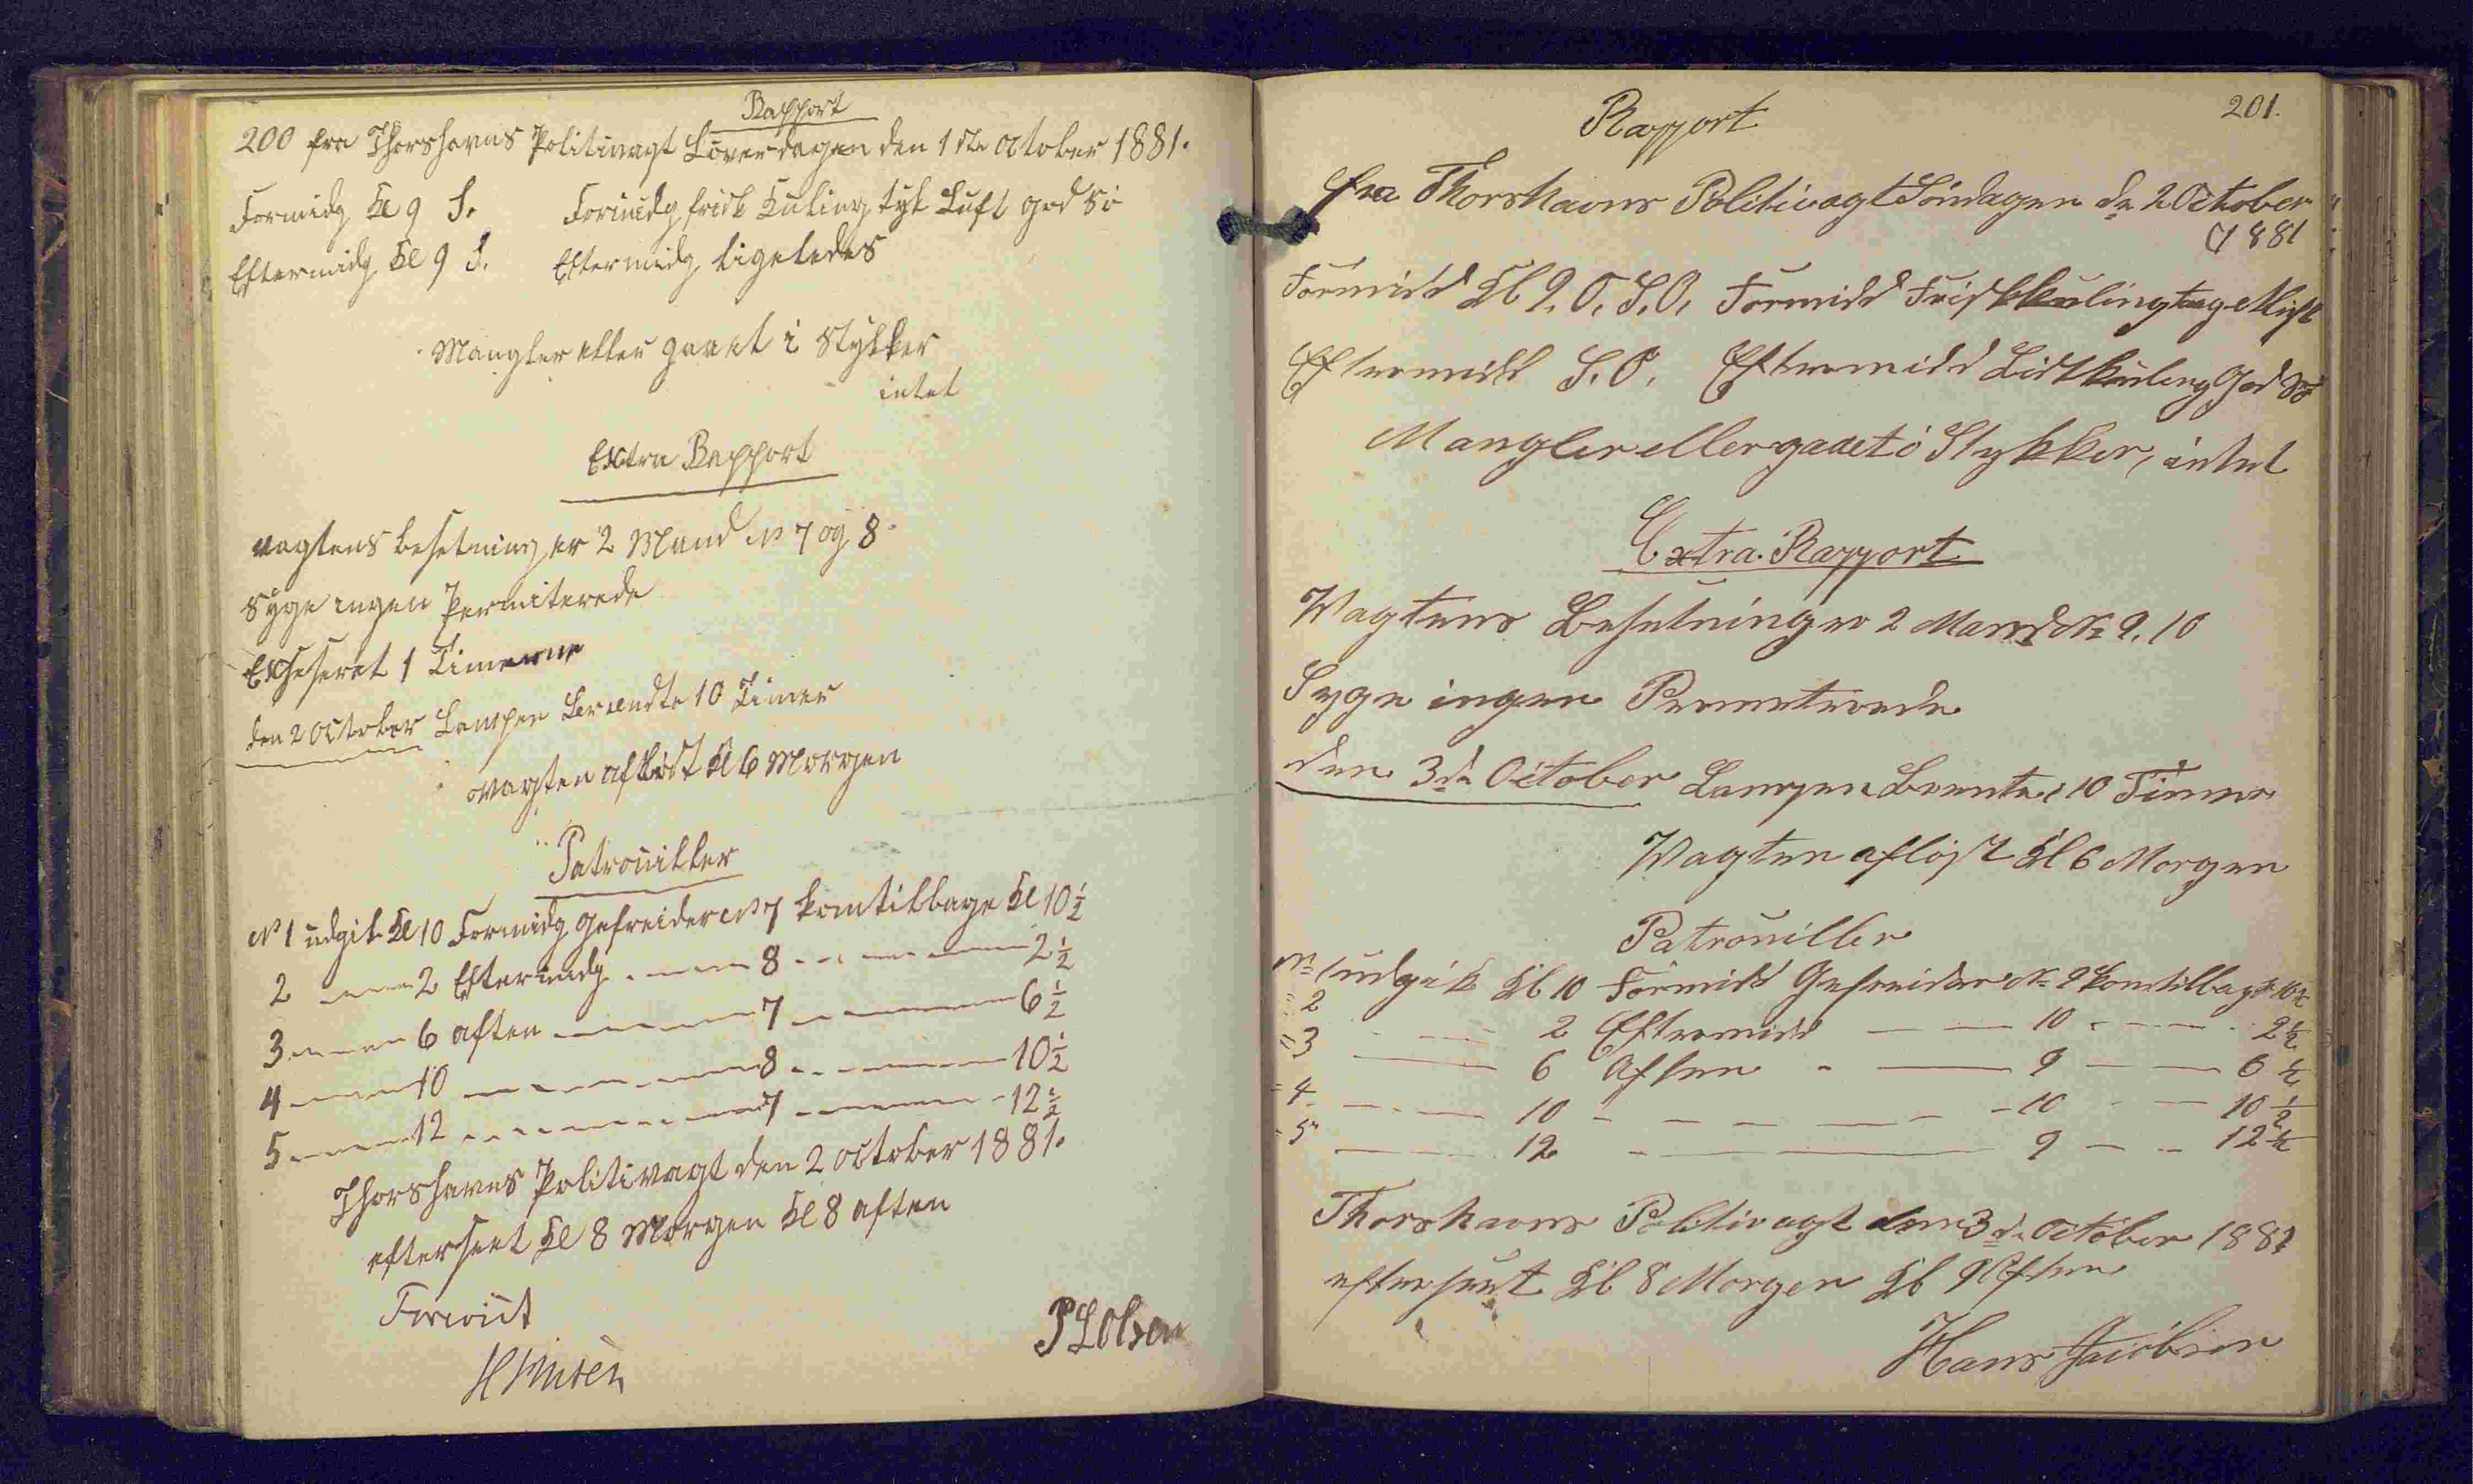 Rapport
200 fra Thorshavns Politivagt Löverdagen den 1ste October 1881.
Formidg Kl 9 S. Formidg frisk Kuling tyk Luft god Sö
Eftermidg Kl 9 S. Eftermidg ligeledes
Mangler eller gaaet i Stykker
intet
Extra Rapport
vagtens besetning er 2 Mand No 7 og 8
Syge ingen Permiterede
Exseseret 1 Timerne
den 2 October Lampen Brændte 10 Timer
vagten aflöst Kl 6 Morgen
Patrouiller
No 1 udgik Kl 10 Formidg Gefreider No 7 kom tilbage Kl 10 1/2
2 — 2 Eftermidg — 8 — 2 1/2
3 — 6 aften — 7 — 6 1/2
4 — 10 — 8 — 10 1/2
5 — 12 — 7 — 12 1/2
Thorshavns Politivagt den 2 October 1881.
efterseet Kl 8 Morgen Kl 8 aften
Forevist
P L Olsen
201.
Rapport
fra Thorshavns Politivagt Söndagen d. 2 October
1881
Formidd Kl 9. O. S. O. Formidd Frisk kuling tyg Mist
Eftermidd S. O. Eftermidd Lidt kuling God Sö
Mangler eller gaaet i Stykker, intet
Extra. Rapport
Vagtens Besetning er 2 Mand No 9. 10
Syge ingen Permeterede
den 3de October Lampen Brente 10 Timer
Vagten aflöst Kl 6 Morgen
Patrouiller
No 1 udgik Kl 10 Formidd Gefreider No 9 kom tilbage 10 1/2
" 2 — 2 Eftermidd — 10 — 2 1/2
" 3 — 6 Aften — 9 — 6 1/2
" 4 — 10 — 10 — 10 1/2
" 5 — 12 — 9 — 12 1/2
Thorshavns Politivagt den 3de October 1881
efterseet Kl 8 Morgen Kl 9 Aften
Hans Jacobsen